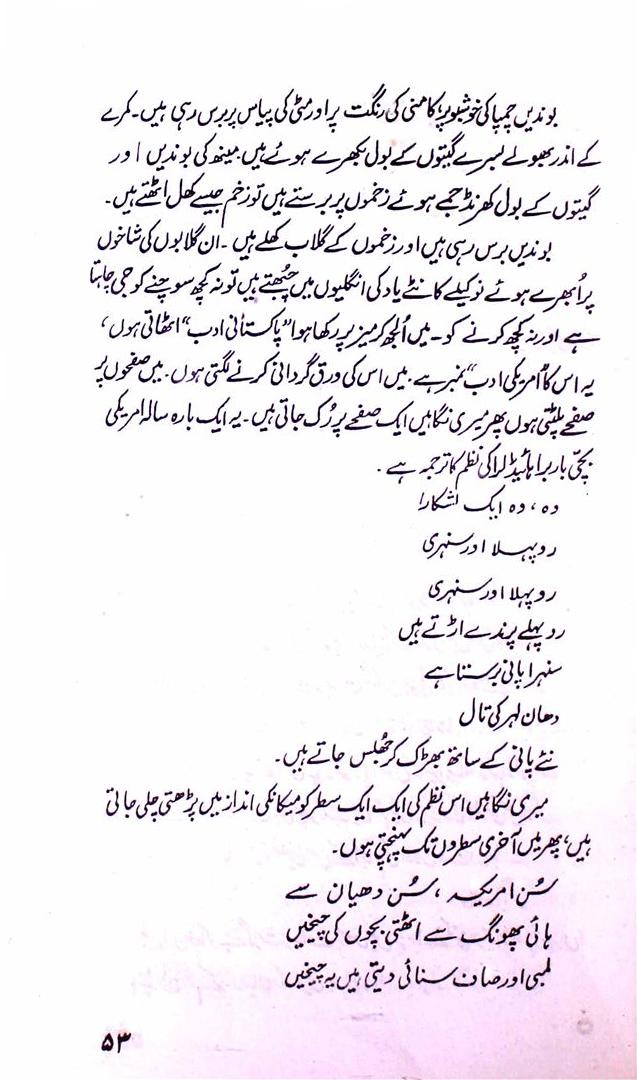 بوندیں چمپا کی خوشبو پر، کامنی کی رنگت پر اور مٹی کی پیاس پر برس رہی ہیں۔ کمرے
کے اندر بھولے بسرے گیتوں کے بول بکھرے ہوئے ہیں۔ مینھ کی بوندیں اور
گیتوں کے بول کھرنڈ جمے ہوئے زخموں پر برستے ہیں تو زخم جیسے کھل اٹھتے ہیں۔
بوندیں برس رہی ہیں اور زخموں کے گلاب کھلے ہیں۔ ان گلابوں کی شاخوں
پر اُبھرے ہوئے نوکیلے کانٹے یاد کی انگلیوں میں چُبھتے ہیں تو نہ کچھ سوچنے کو جی چاہتا
ہے اور نہ کچھ کرنے کو۔ میں اُلجھ کر میز پر رکھا ہوا ”پاکستانی ادب“ اٹھاتی ہوں،
یہ اس کا ”امریکی ادب“ نمبر ہے۔ میں اس کی ورق گردانی کرنے لگتی ہوں۔ میں صفحوں پر
صفحے پلٹتی ہوں پھر میری نگاہیں ایک صفحے پر رُک جاتی ہیں۔ یہ ایک بارہ سالہ امریکی
بچّی باربرا ہائیڈلرا کی نظم کا ترجمہ ہے۔
وہ، وہ ایک لشکارا
روپہلا اور سنہری
روپہلا اور سنہری
روپہلے پرندے اڑتے ہیں
سنہرا پانی برستا ہے
دھان لہر کی تال
نئے پانی کے ساتھ بھڑک کر جُھلس جاتے ہیں۔
میری نگاہیں اس نظم کی ایک ایک سطر کو میکانکی انداز میں پڑھتی چلی جاتی
ہیں، پھر میں آخری سطروں تک پہنچتی ہوں۔
سُن امریکہ، سُن دھیان سے
ہائی پھونگ سے اٹھتی بچوں کی چیخیں
لمبی اور صاف سنائی دیتی ہیں یہ چیخیں
۵۳